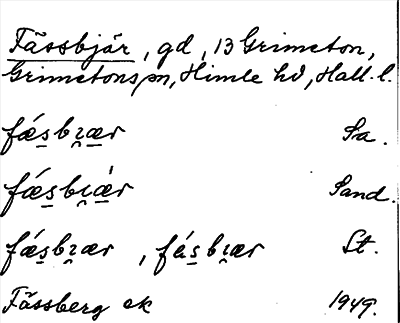 Fässbjär, gd, 13 Grimeton,
Grimetons sn, Himle hd, Hall. l.
fǽs̠bɪ̯ær Sa.
fǽs̠bɪ̯ǽr Sand.
fǽs̠bɪ̯ær, fás̠bɪ̯ær St.
Fässberg ek 1949.